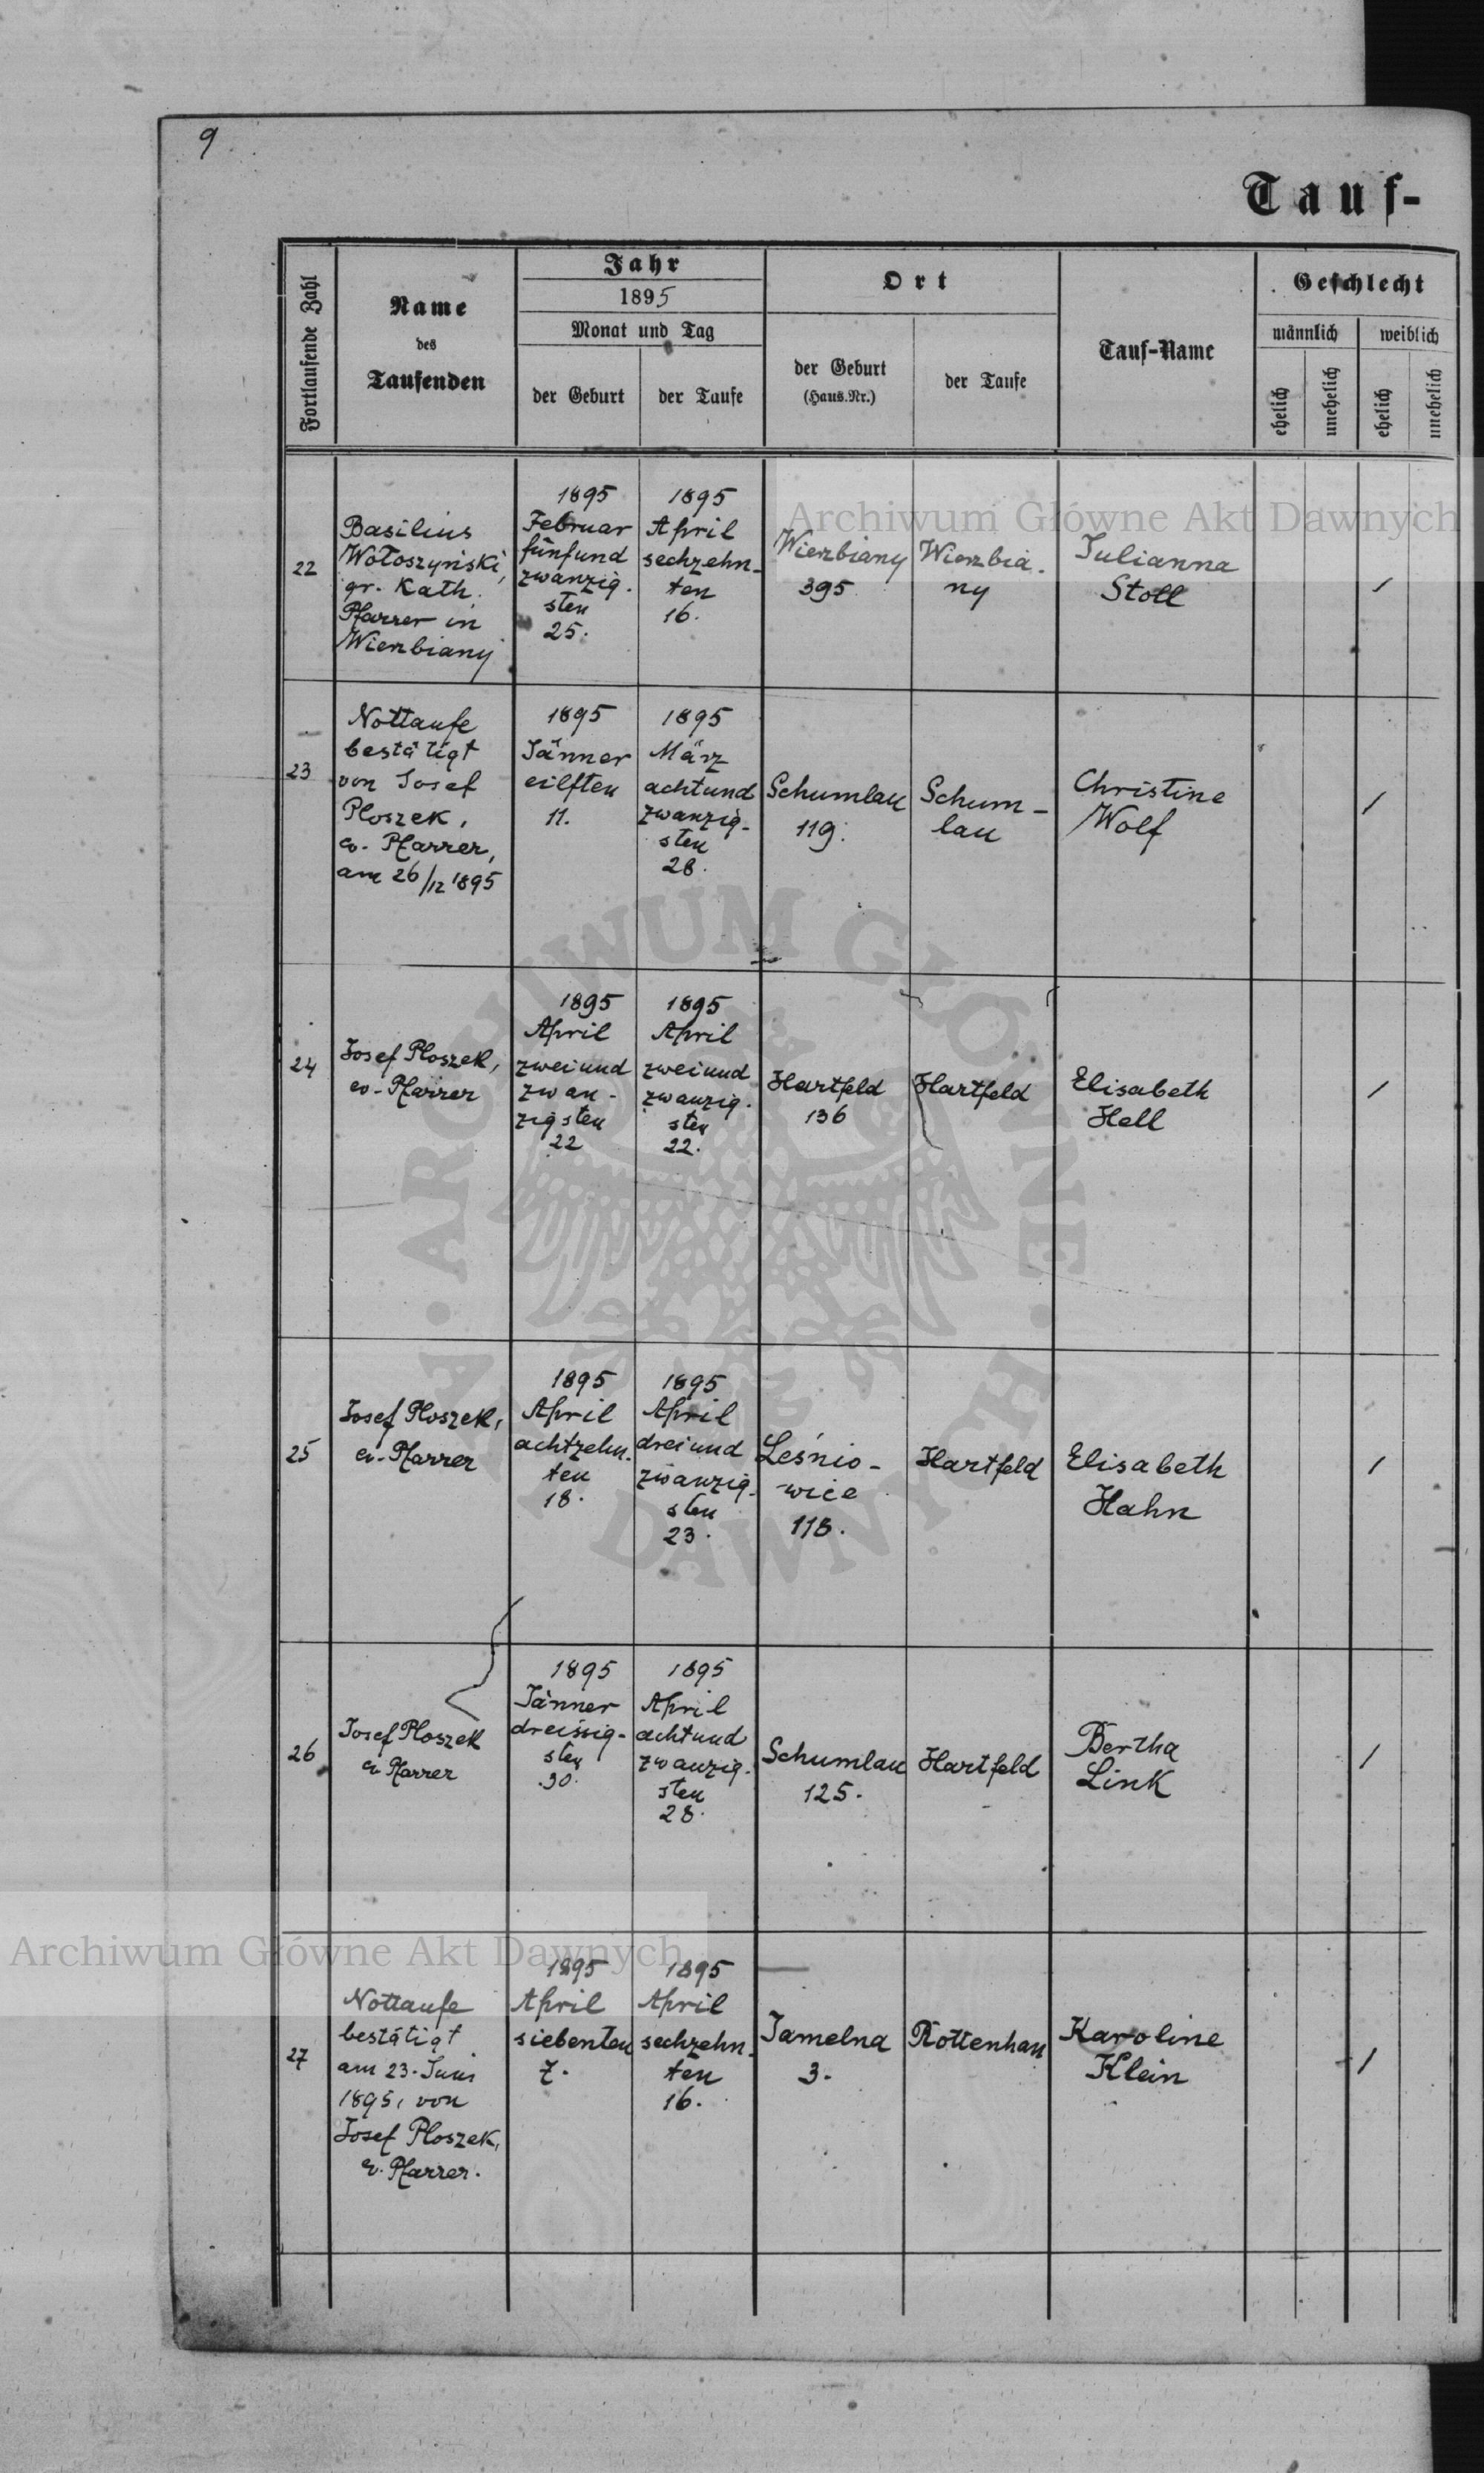 9
Tauf-
Fortlaufende Zahl
Name
des
Taufenden
Jahr
1895
Monat und Tag
der Geburt
der Taufe
Ort
der Geburt
(Haus.Nr.)
der Taufe
Tauf-Name
Geschlecht
männlich
weiblich
ehelich
unehelich
ehelich
unehelich
22
Basilius
Wołoszyński,
gr. Kath.
Pfarrer in
Wierzbiany
1895
Februar
fünfund
zwanzig-
sten
25.
1895
April
sechzehn-
ten
16.
Wierzbiany
395
Wierzbia-
ny
Julianna
Stoll
/
23
Nottaufe
bestätigt
von Josef
Ploszek,
ev. Pfarrer,
am 26/12 1895
1895
Jänner
eilften
11.
1895
März
achtund
zwanzig-
sten
28.
Schumlau
119.
Schum-
lau
Christine
Wolf
/
24
Josef Ploszek,
ev. Pfarrer
1895
April
zweiund
zwan-
zigsten
22
1895
April
zweiund
zwanzig-
sten
22.
Hartfeld
136
Hartfeld
Elisabeth
Hell
/
25
Josef Ploszek,
ev. Pfarrer
1895
April
achtzehn-
ten
18.
1895
April
dreiund
zwanzig-
sten
23.
Leśnio-
wice
118.
Hartfeld
Elisabeth
Hahn
/
26
Josef Ploszek
ev Pfarrer
1895
Jänner
dreissig-
sten
30.
1895
April
achtund
zwanzig-
sten
28.
Schumlau
125.
Hartfeld
Bertha
Link
/
27
Nottaufe
bestätigt
am 23. Juni
1895, von
Josef Ploszek,
ev. Pfarrer.
1895
April
siebenten
7.
1895
April
sechzehn-
ten
16.
Jamelna
3.
Rottenhan
Karoline
Klein
/
Archiwum Główne Akt Dawnych
ARCHIWUM GŁÓWNE AKT DAWNYCH
Archiwum Główne Akt Dawnych